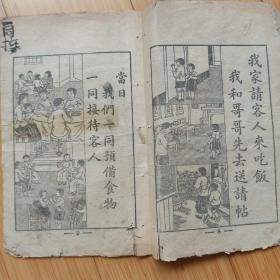 我家請客人來吃飯
我和哥哥先去送請帖
當日
我們一同預備食物
一同接待客人